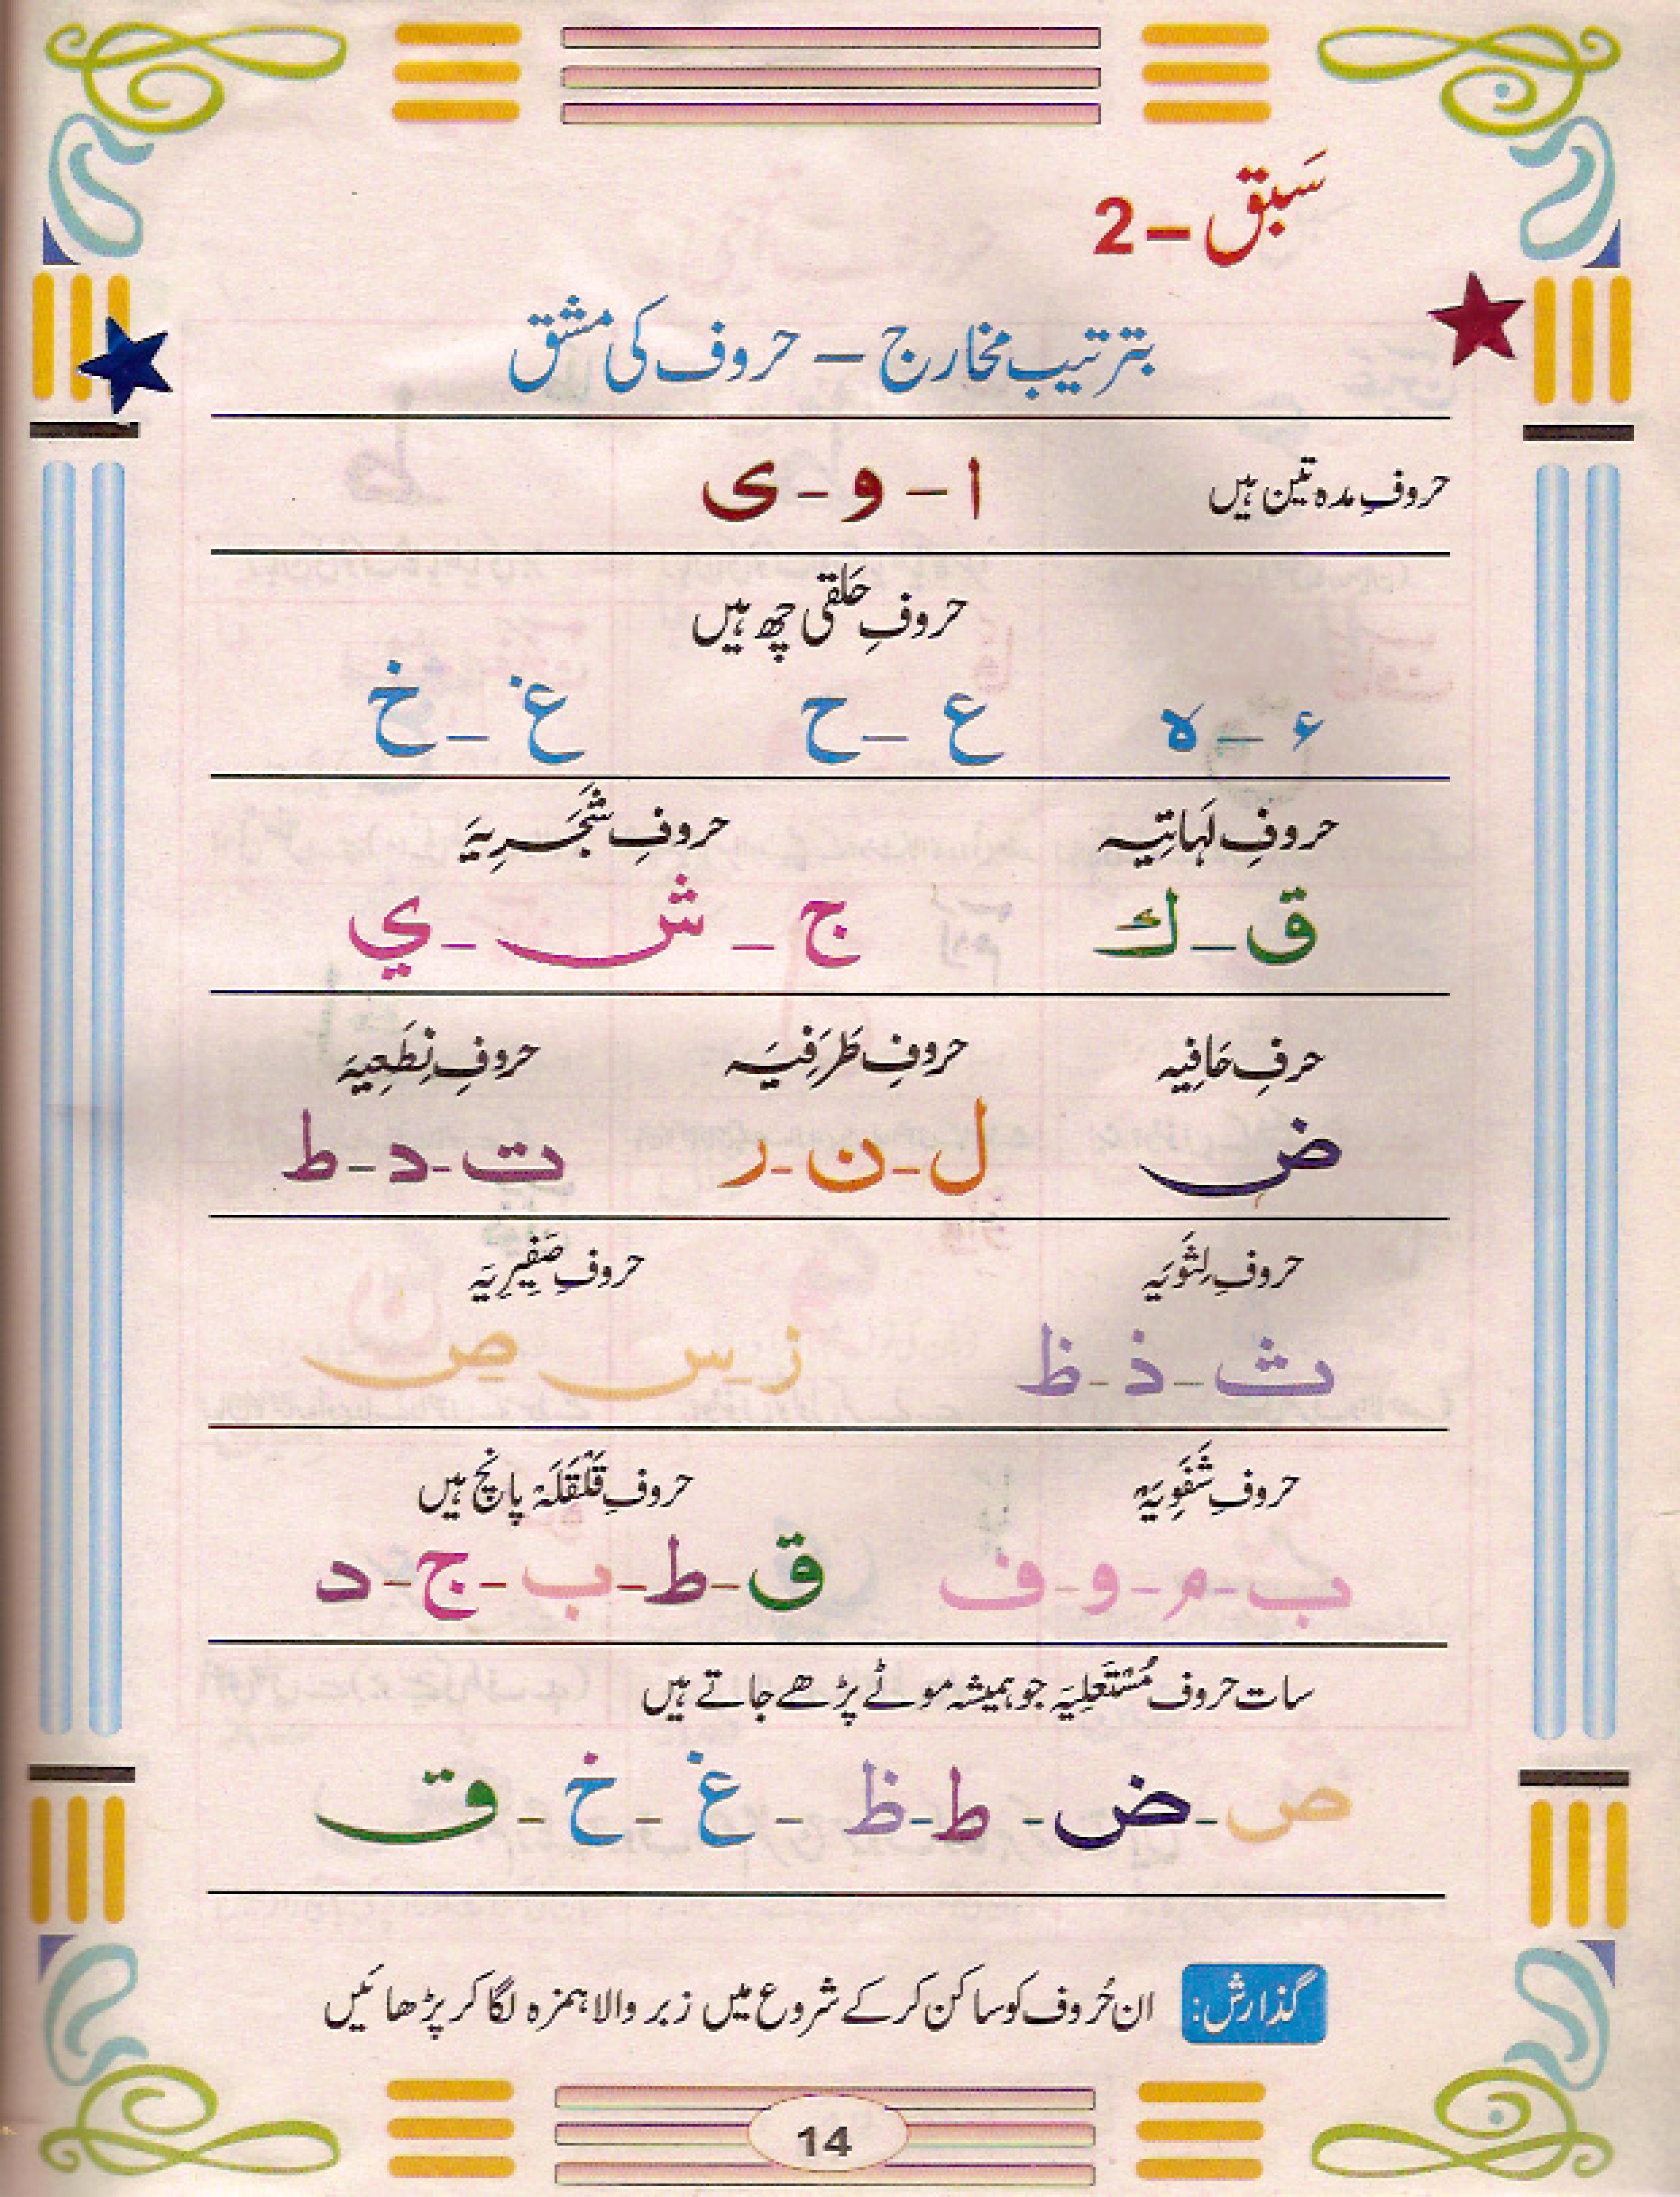 سَبق – 2
بترتیب مخارج – حروف کی مشق
حروفِ مدہ تین ہیں ا - و - ی
حروفِ حَلقی چھ ہیں
ء - ہ ع - ح غ - خ
حروفِ لَہاتِیہ حروفِ شَجَرِیَہ
ق - ك ج - ش - ي
حرفِ حَافِیہ حروفِ طَرَفِیَہ حروفِ نِطَعِیَہ
ض ل - ن - ر ت - د - ط
حروفِ لِثَوِیَہ حروفِ صَفِیرِیَہ
ث - ذ - ظ ز - س ص
حروفِ شَفَوِیَہ حروفِ قَلْقَلَہ پانچ ہیں
ب - م - و - ف ق - ط - ب - ج - د
سات حروف مُسْتَعلِیَہ جو ہمیشہ موٹے پڑھے جاتے ہیں
ص - ض - ط - ظ - غ - خ - ق
گذارش: ان حُروف کو ساکن کر کے شروع میں زبر والا ہمزہ لگا کر پڑھائیں
14